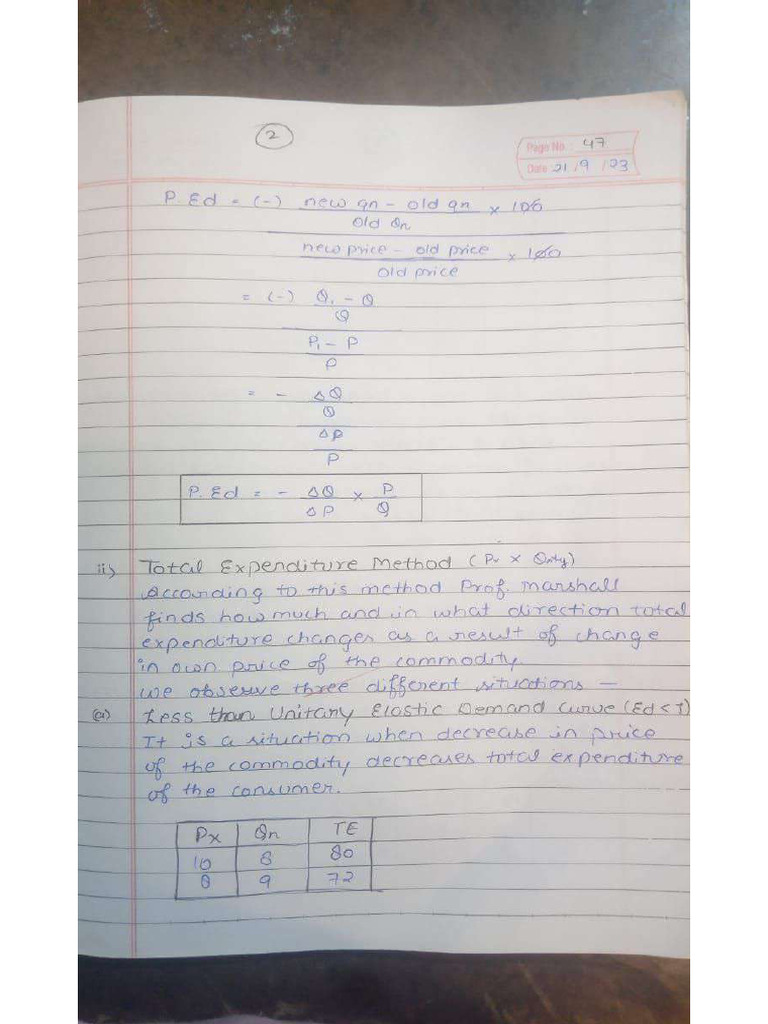 2
Page No.: 47
Date 21/9/23
P. Ed = (-) new qn - old qn × 100
old Qn
new price - old price × 100
old price
= (-) Q1 - Q
Q
P1 - P
P
= - ΔQ
Q
ΔP
P
P. Ed = - ΔQ × P
ΔP Q
ii) Total Expenditure Method (Pr × Qnty)
According to this method Prof. Marshall
finds how much and in what direction total
expenditure changes as a result of change
in own price of the commodity
we observe three different situations -
(a) Less than Unitary Elastic Demand Curve (Ed < 1)
It is a situation when decrease in price
of the commodity decreases total expenditure
of the consumer.
Px Qn TE
10 8 80
8 9 72